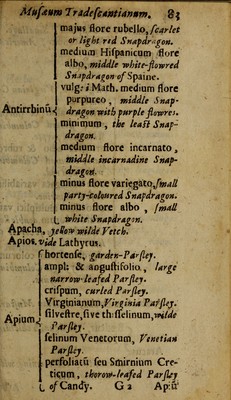 Musæum Tradescantianum. 83
majus flore rubello, scarlet
or light red Snapdragon.
medium Hispanicum flore
albo, middle white-flowred
Snapdragon of Spaine.
vulg: i Math. medium flore
purpureo, middle Snap-
dragon with purple flowres.
Antirrhinū minimum, the least Snap-
dragon.
medium flore incarnato,
middle incarnadine Snap-
dragon.
minus flore variegato, small
party-coloured Snapdragon.
minus flore albo, small
white Snapdragon.
Apacha, yellow wilde Vetch.
Apios. vide Lathyrus.
hortense, garden-Parsley.
ampl: & angustifolio, large
narrow-leafed Parsley.
crispum, curled Parsley.
Virginianum, Virginia Parsley.
Apium silvestre, sive thisselinum, wilde
Parsley.
selinum Venetorum, Venetian
Parsley.
perfoliatū seu Smirnium Cre-
ticum, thorow-leafed Parsley
of Candy. G 2 Apiū